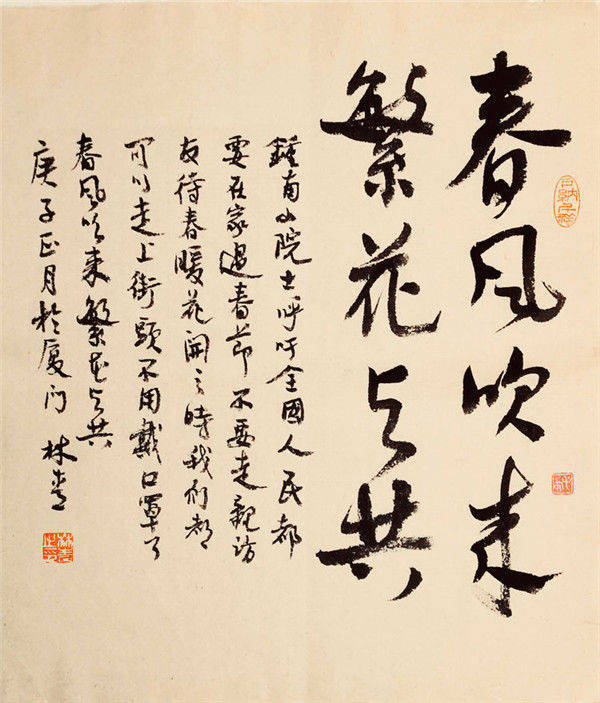 春风吹来
繁花与共
鍾南山院士呼吁全國人民都
要在家過春節不要走親访
友待春暖花開之時我们都
可以走上街頭不用戴口罩了
春风吹来繁花与共
庚子正月於厦门 林